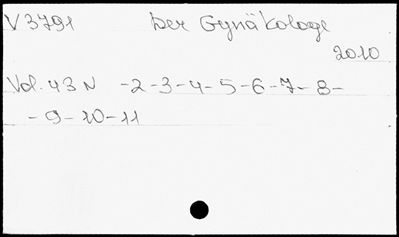 V 3791 Der Gynäkologe
2010
Vol. 43 N -2-3-4-5-6-7-8-
-9-10-11